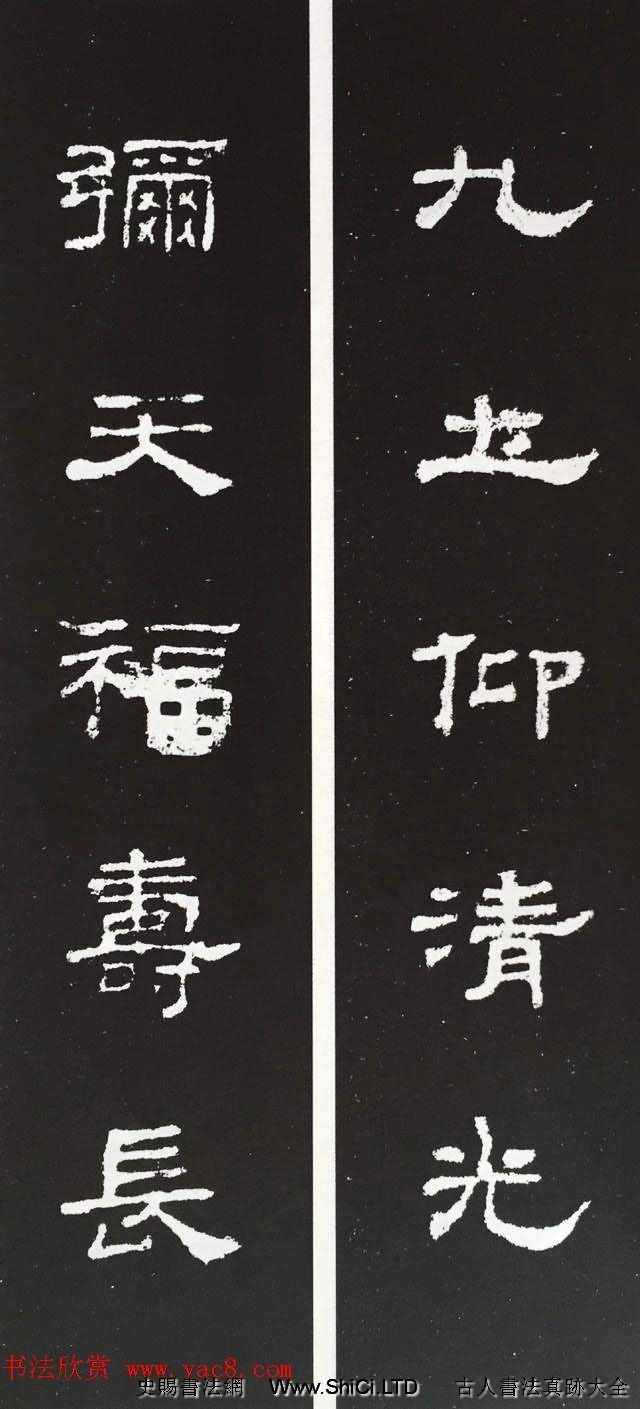 九土仰清光
彌天福壽長
书法欣赏 www.yac8.com
史賜書法網 Www.ShiCi.LTD 古人書法真跡大全